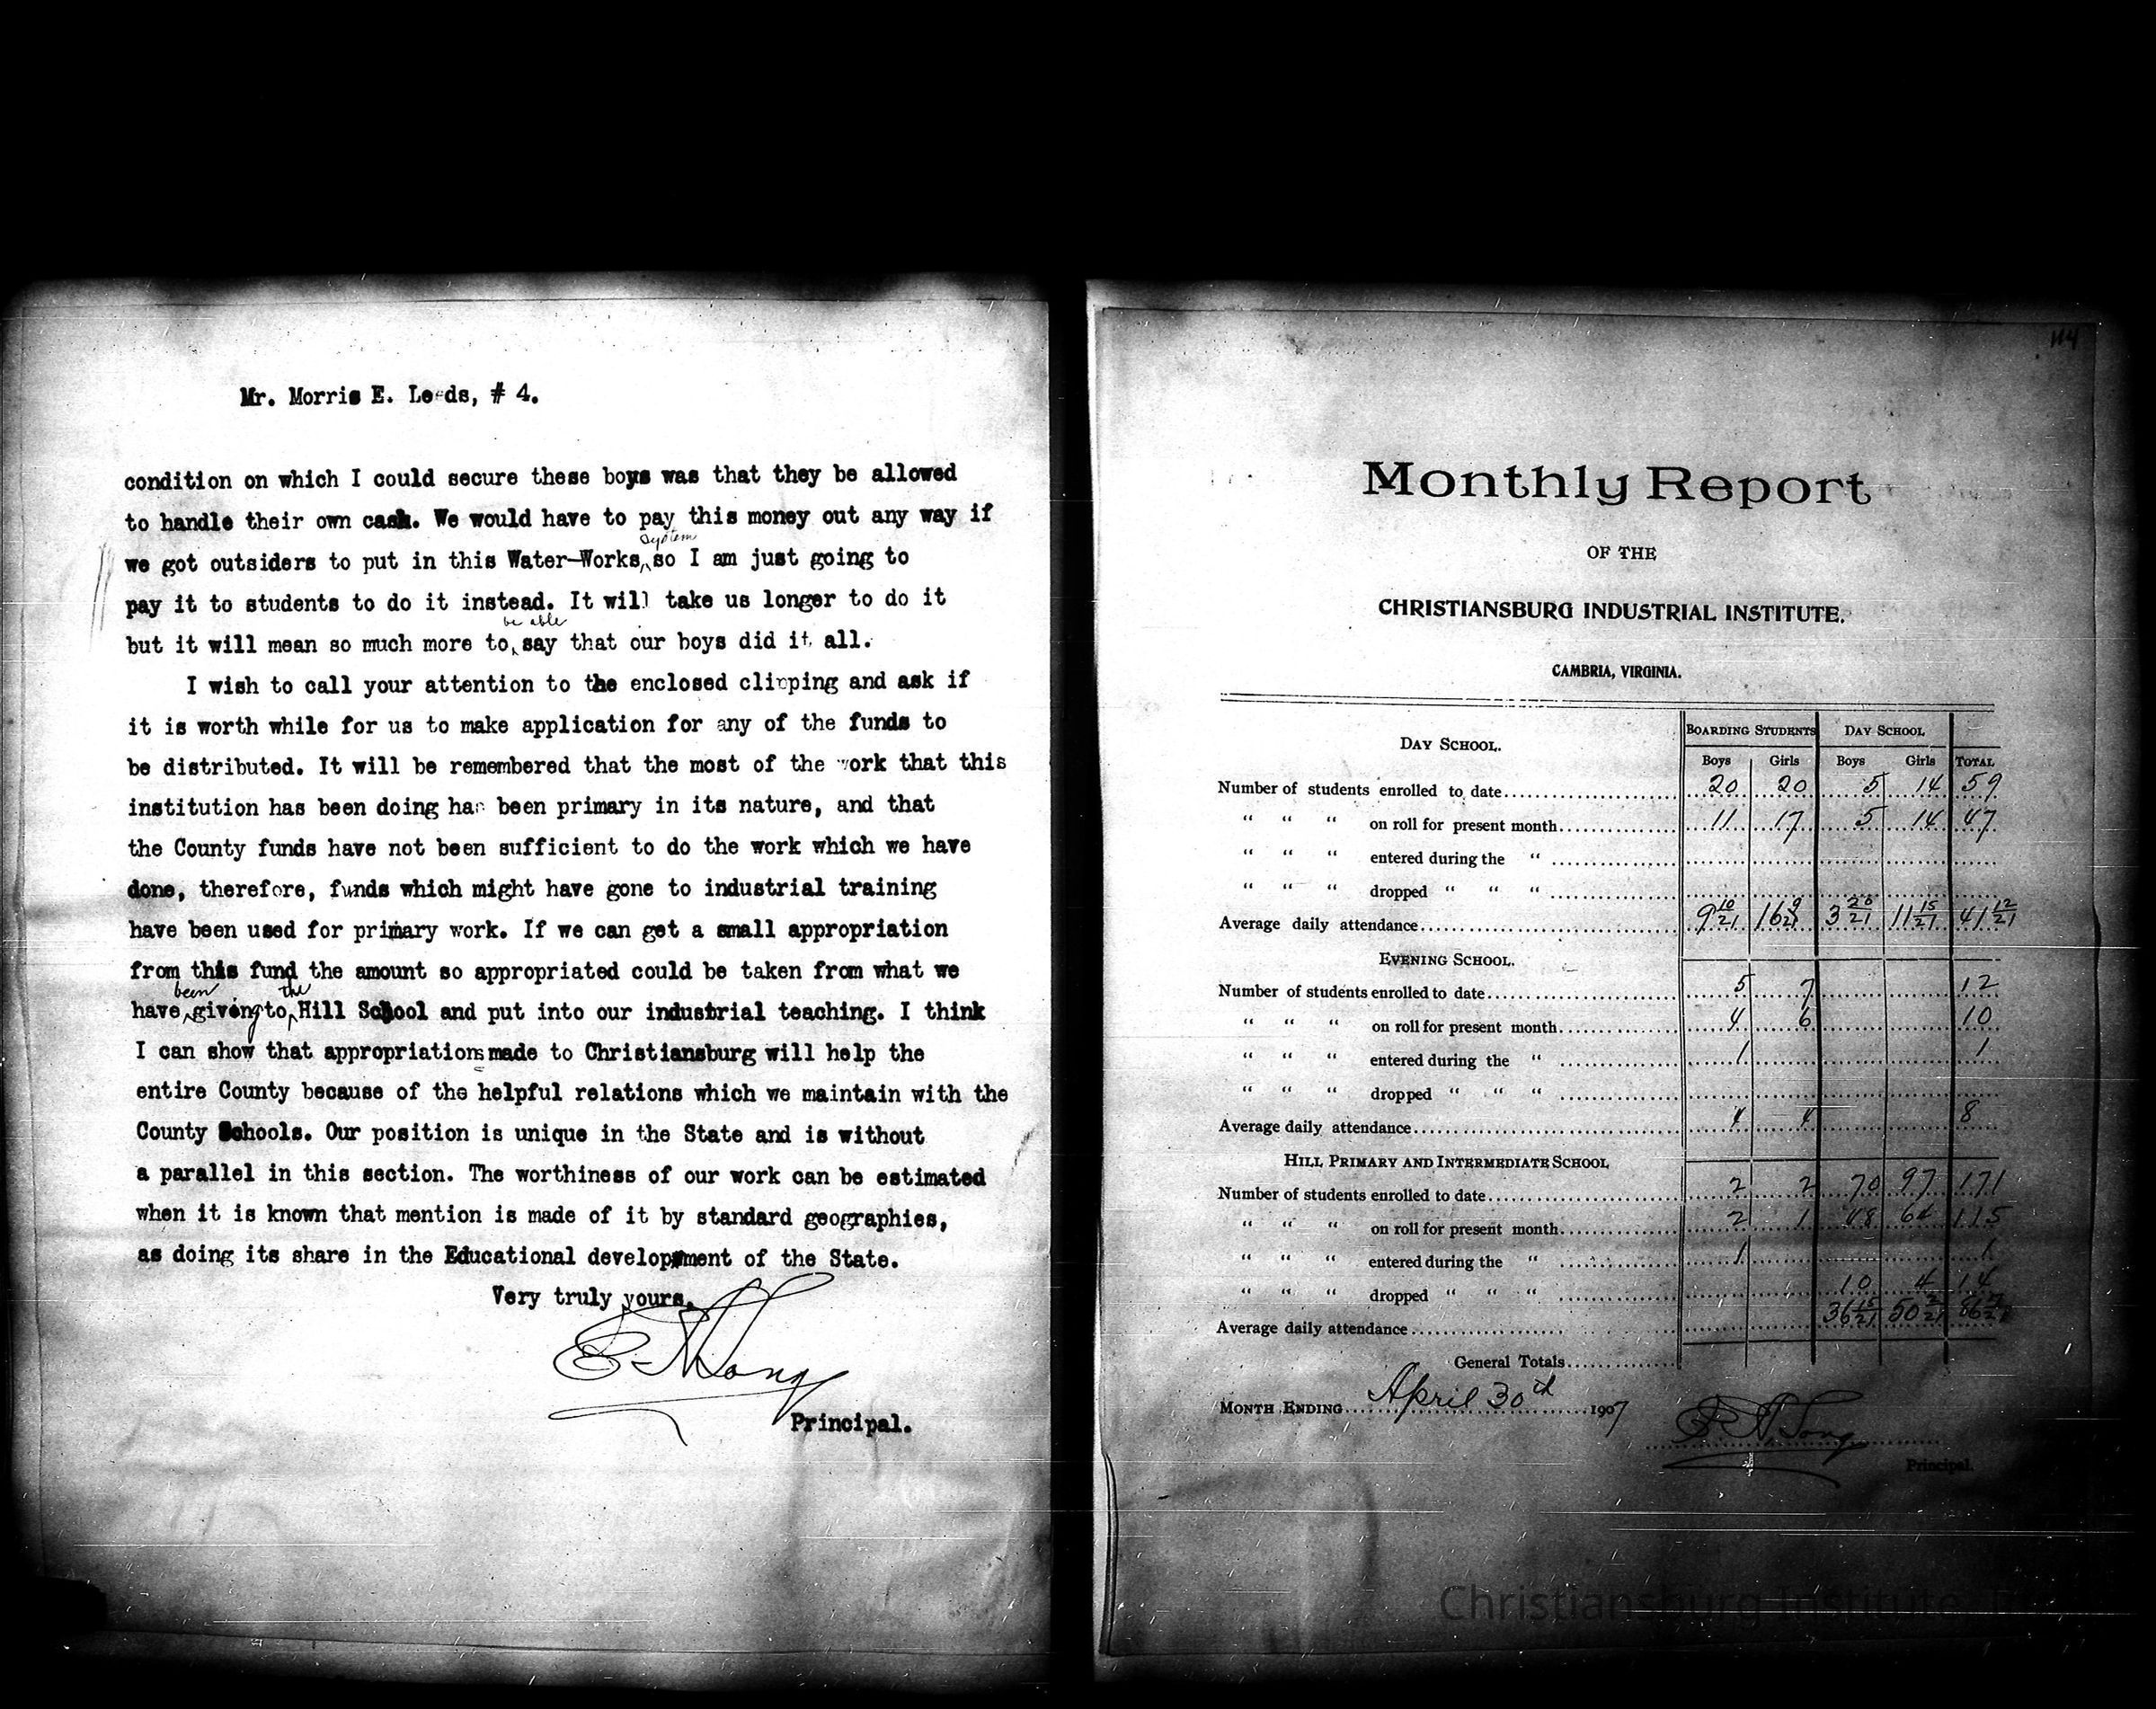 Mr. Morris E. Leeds, # 4.
condition on which I could secure these boys was that they be allowed
to handle their own cash. We would have to pay this money out any way if
system
we got outsiders to put in this Water-Works, so I am just going to
pay it to students to do it instead. It will take us longer to do it
be able
but it will mean so much more to say that our boys did it all.
I wish to call your attention to the enclosed clipping and ask if
it is worth while for us to make application for any of the funds to
be distributed. It will be remembered that the most of the work that this
institution has been doing has been primary in its nature, and that
the County funds have not been sufficient to do the work which we have
done, therefore, funds which might have gone to industrial training
have been used for primary work. If we can get a small appropriation
from this fund the amount so appropriated could be taken from what we
been the
have giving to Hill School and put into our industrial teaching. I think
I can show that appropriations made to Christiansburg will help the
entire County because of the helpful relations which we maintain with the
County Schools. Our position is unique in the State and is without
a parallel in this section. The worthiness of our work can be estimated
when it is known that mention is made of it by standard geographies,
as doing its share in the Educational development of the State.
Very truly yours,
E A Long
Principal.
114
Monthly Report
OF THE
CHRISTIANSBURG INDUSTRIAL INSTITUTE.
CAMBRIA, VIRGINIA.
BOARDING STUDENTS DAY SCHOOL
DAY SCHOOL.
Boys Girls Boys Girls TOTAL
Number of students enrolled to date 20 20 5 14 59
" " " on roll for present month 11 17 5 14 47
" " " entered during the "
" " " dropped " " "
Average daily attendance 9 10/21 16 9/21 3 20/21 11 15/21 41 12/21
EVENING SCHOOL.
Number of students enrolled to date 5 7 12
" " " on roll for present month 4 6 10
" " " entered during the " 1 1
" " " dropped " " "
Average daily attendance 4 4 8
HILL PRIMARY AND INTERMEDIATE SCHOOL
Number of students enrolled to date 2 2 70 97 171
" " " on roll for present month 2 1 48 64 115
" " " entered during the " 1 1
" " " dropped " " " 10 4 14
Average daily attendance 36 15/21 50 2/21 86
General Totals
MONTH ENDING April 30th 1907
E A Long
Principal.
Christiansburg Institute